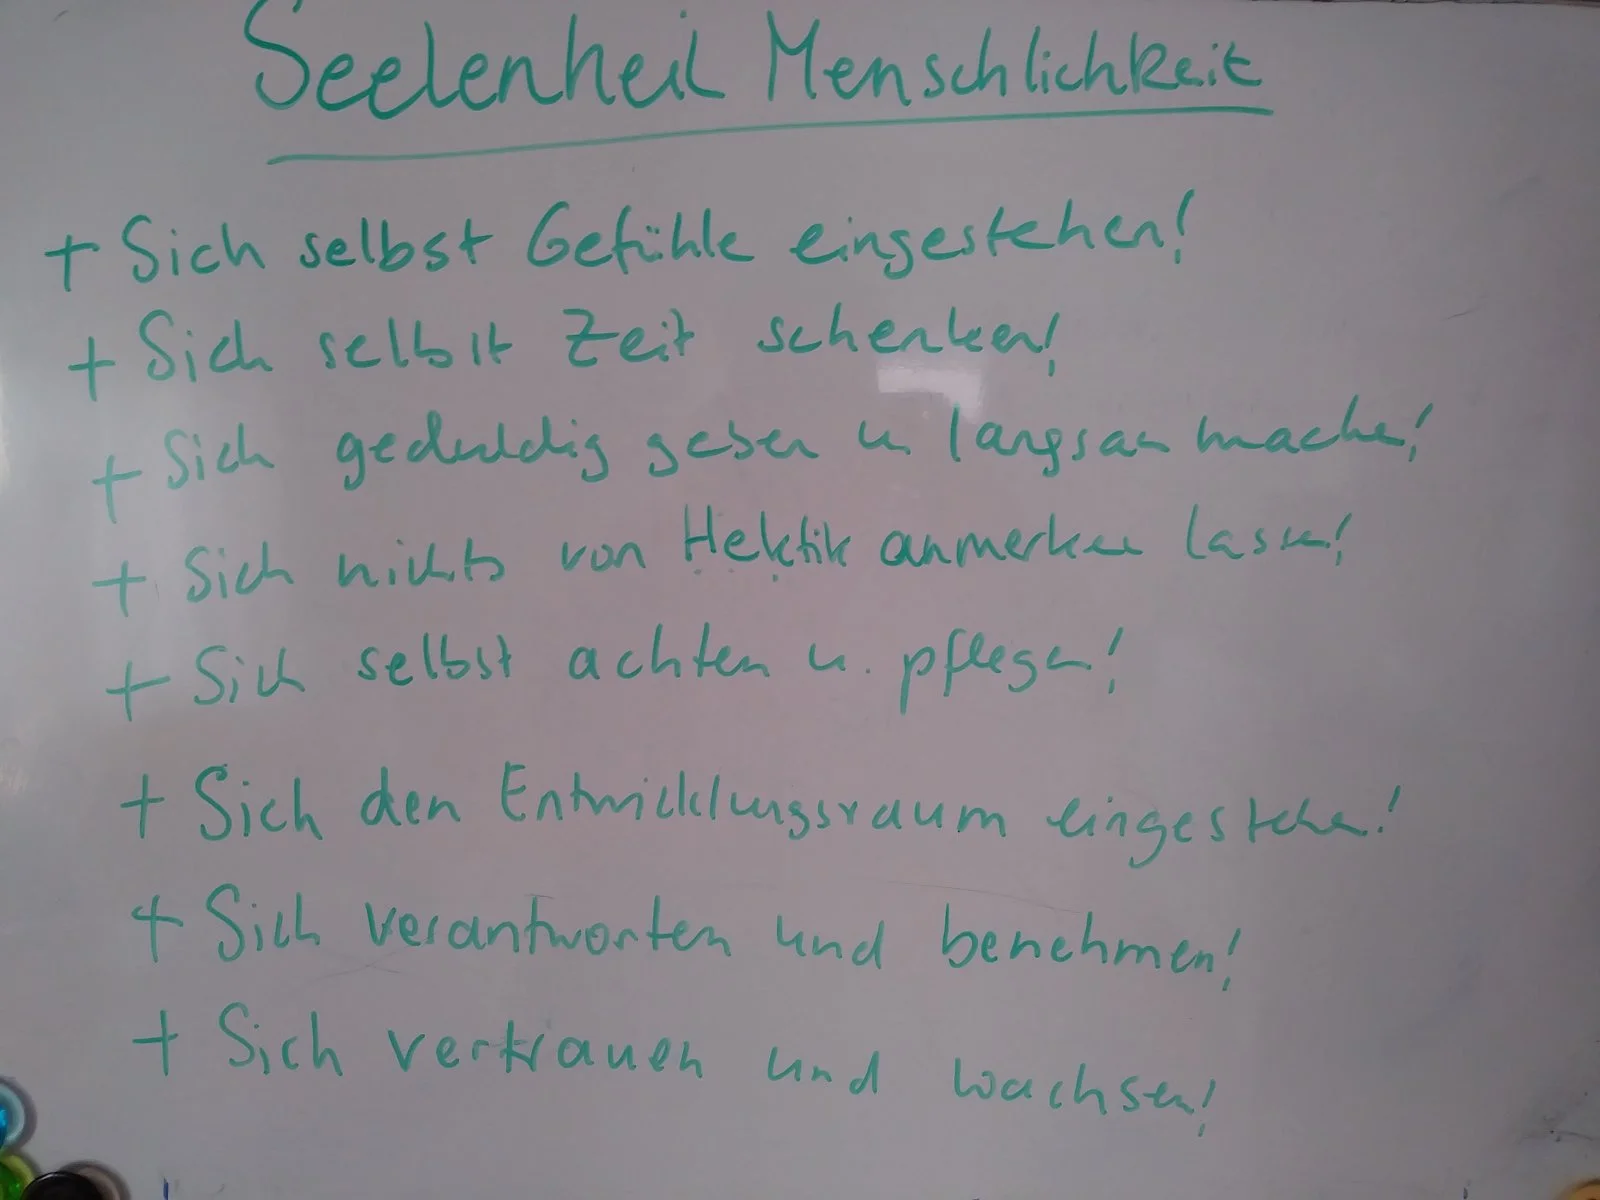 Seelenheil Menschlichkeit
+ Sich selbst Gefühle eingestehen!
+ Sich selbst Zeit schenken!
+ Sich geduldig geben u langsam machen!
+ Sich nichts von Hektik anmerken lassen!
+ Sich selbst achten u. pflegen!
+ Sich den Entwicklungsraum eingestehen!
+ Sich verantworten und benehmen!
+ Sich vertrauen und wachsen!